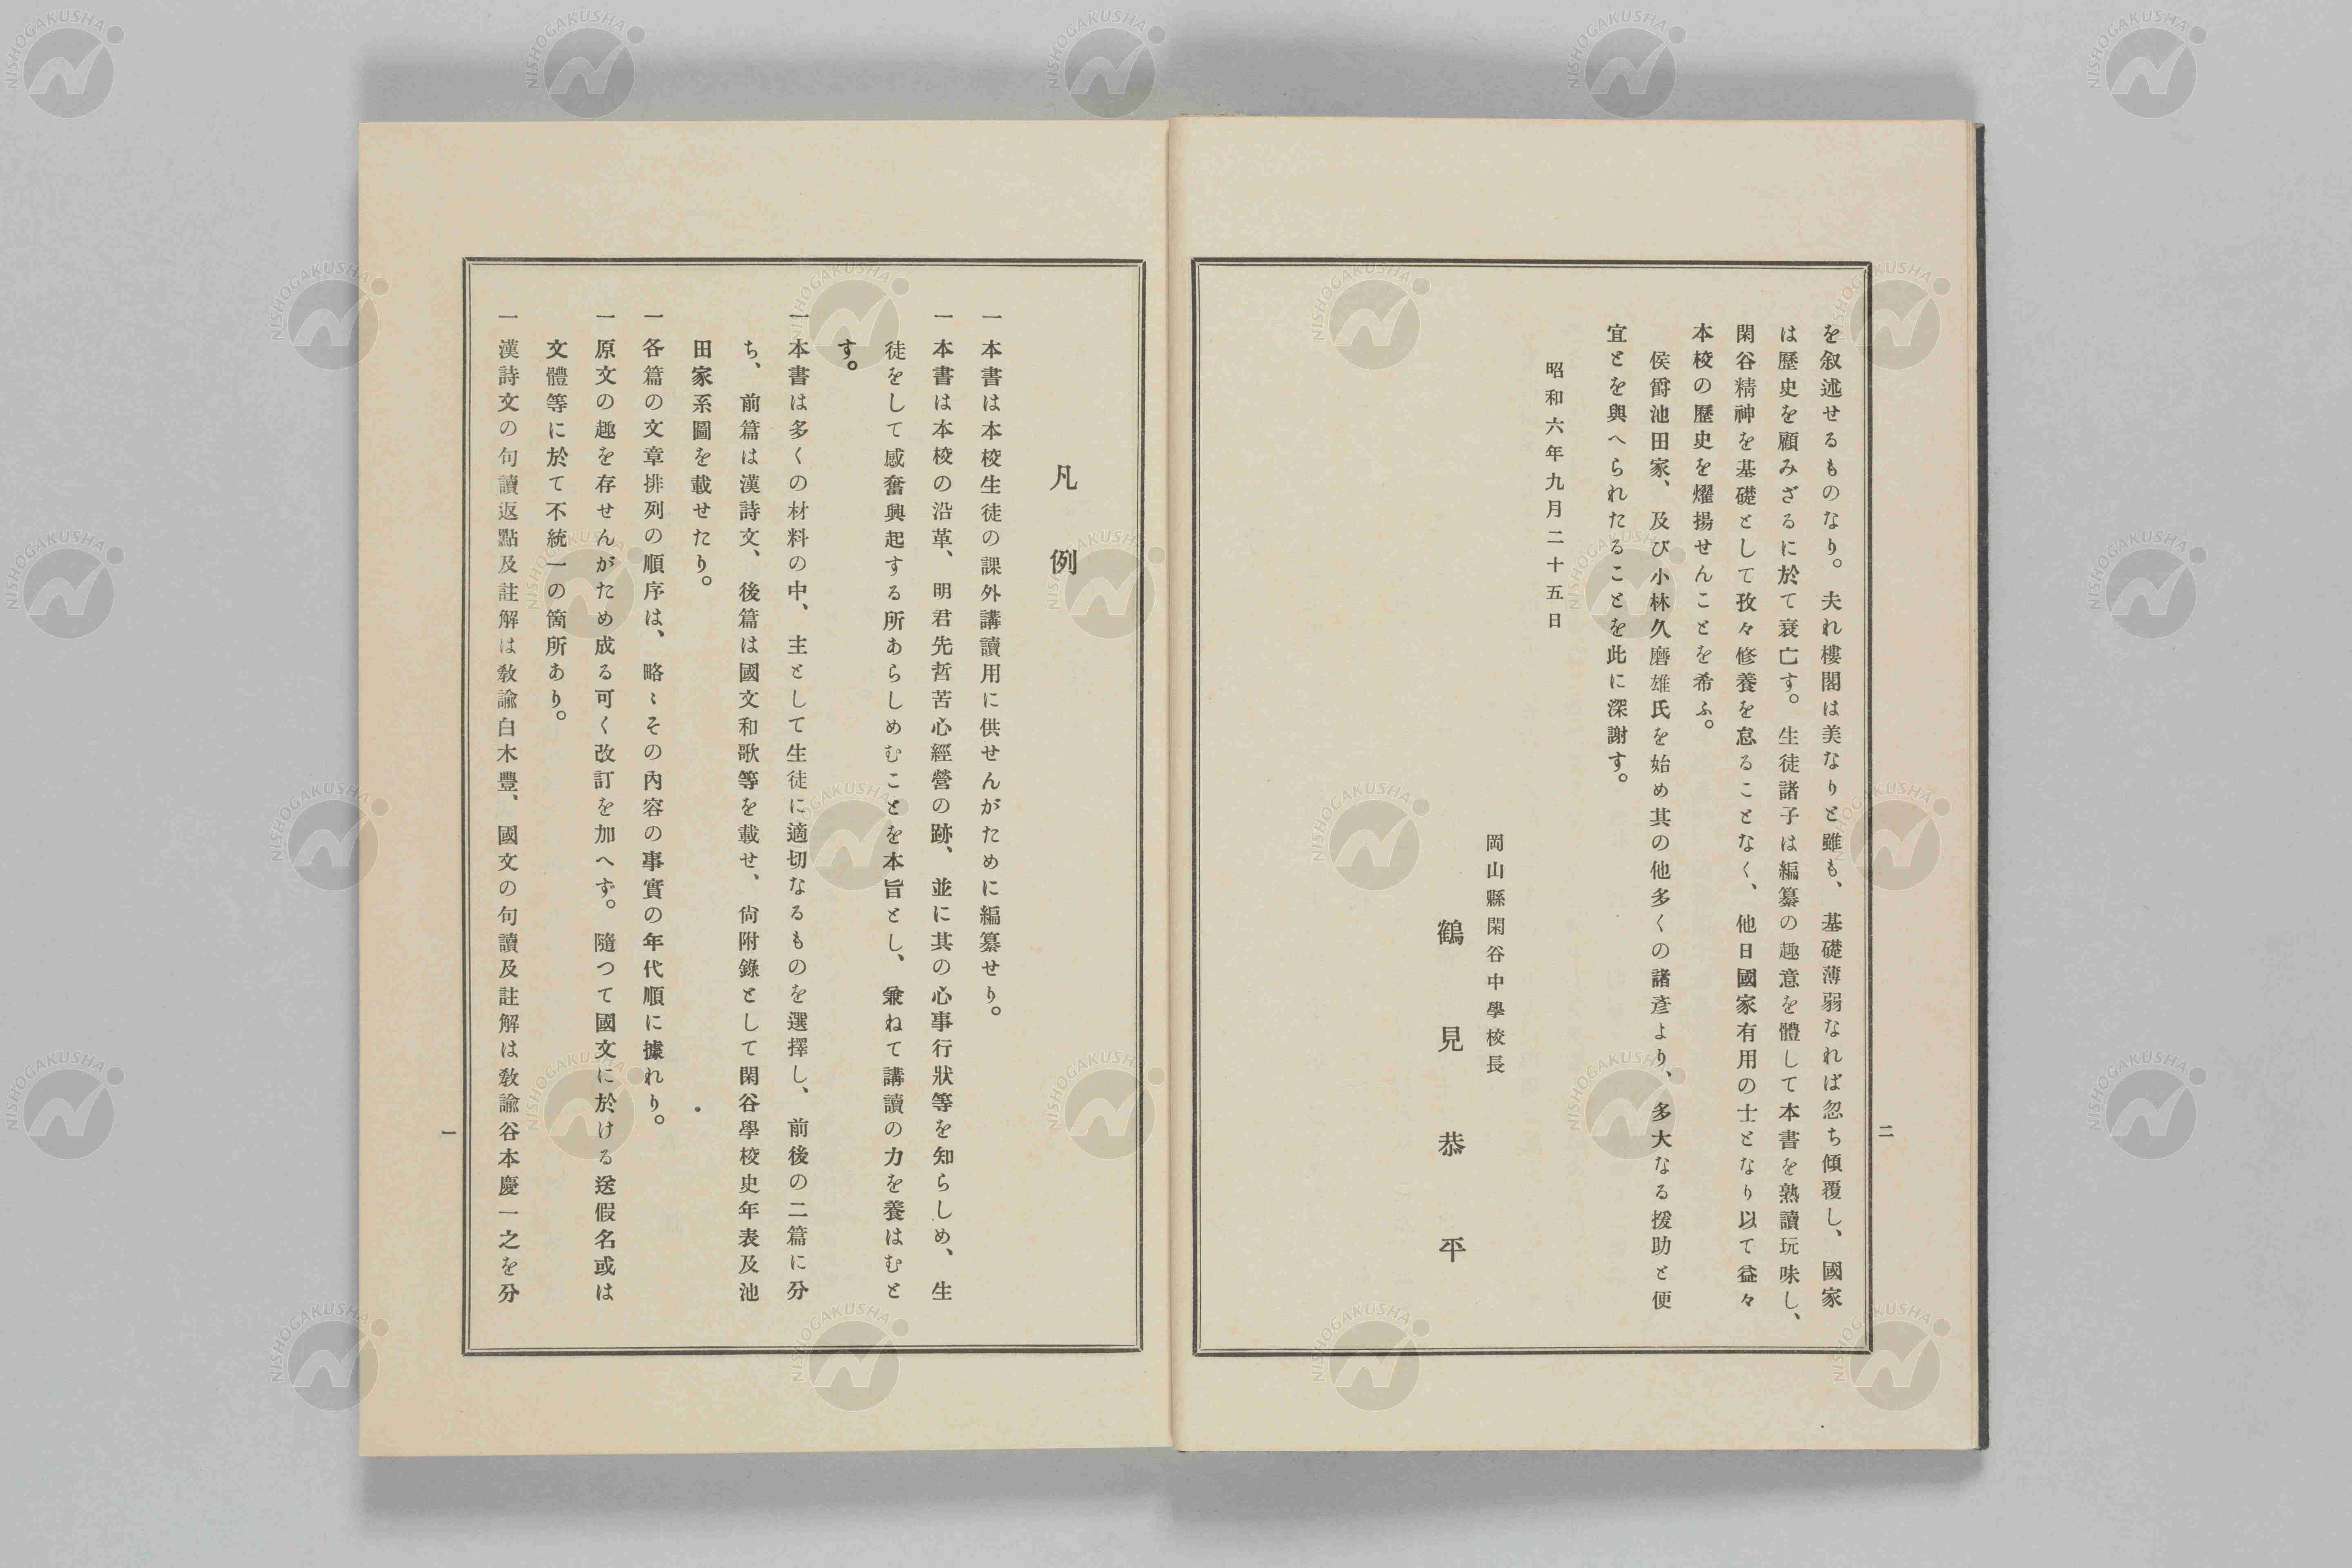 二
を叙述せるものなり。夫れ樓閣は美なりと雖も、基礎薄弱なれば忽ち傾覆し、國家
は歷史を顧みざるに於て衰亡す。生徒諸子は編纂の趣意を體して本書を熟讀玩味し、
閑谷精神を基礎として孜々修養を怠ることなく、他日國家有用の士となり以て益々
本校の歷史を燿揚せんことを希ふ。
侯爵池田家、及び小林久磨雄氏を始め其の他多くの諸彥より、多大なる援助と便
宜とを與へられたることを此に深謝す。
昭和六年九月二十五日
岡山縣閑谷中學校長
鶴見恭平
凡例
一本書は本校生徒の課外講讀用に供せんがために編纂せり。
一本書は本校の沿革、明君先哲苦心經營の跡、並に其の心事行狀等を知らしめ、生
徒をして感奮興起する所あらしめむことを本旨とし、兼ねて講讀の力を養はむと
す。
一本書は多くの材料の中、主として生徒に適切なるものを選擇し、前後の二篇に分
ち、前篇は漢詩文、後篇は國文和歌等を載せ、尙附錄として閑谷學校史年表及池
田家系圖を載せたり。
一各篇の文章排列の順序は、略〻その內容の事實の年代順に據れり。
一原文の趣を存せんがため成る可く改訂を加へず。隨つて國文に於ける送假名或は
文體等に於て不統一の箇所あり。
一漢詩文の句讀返點及註解は敎諭白木豐、國文の句讀及註解は敎諭谷本慶一之を分
一
NISHOGAKUSHA